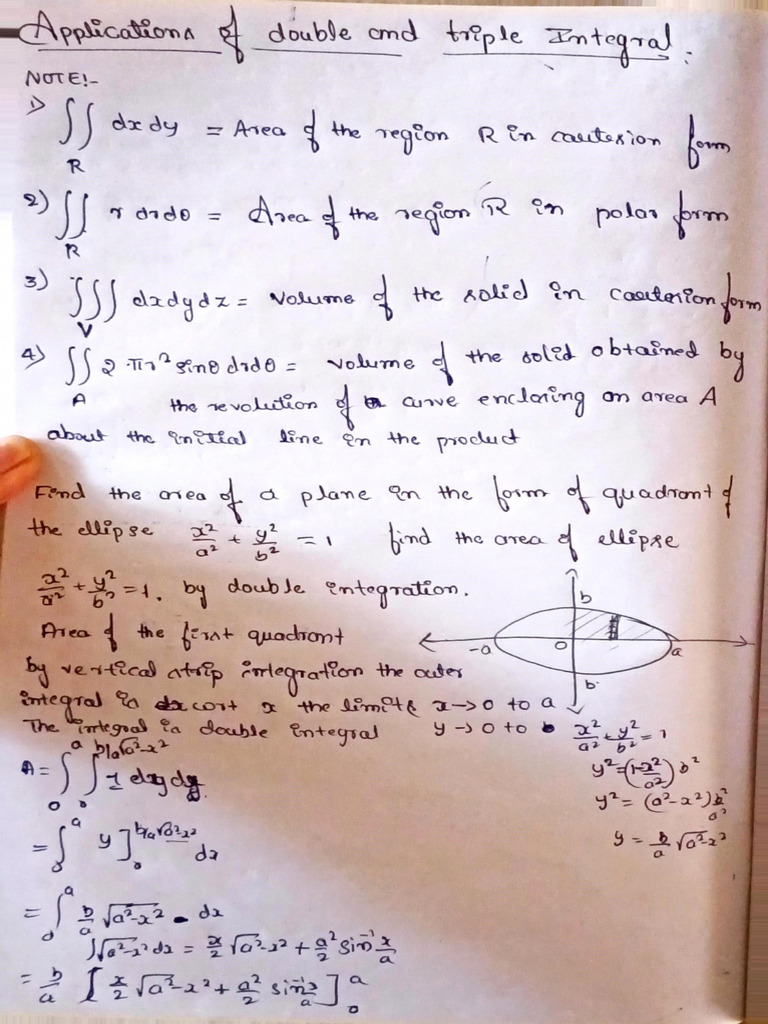 Applications of double and triple Integral.
NOTE:-
1) ∬ dxdy = Area of the region R in cartesion form
R
2) ∬ r drdθ = Area of the region R in polar form
R
3) ∭ dxdydz = Volume of the solid in cartesion form
V
4) ∬ 2πr² sinθ drdθ = volume of the solid obtained by
A the revolution of curve encloring an area A
about the initial line in the product
Find the area of a plane in the form of quadrant of
the ellipse x²/a² + y²/b² = 1 find the area of ellipse
x²/a² + y²/b² = 1. by double integration.
b
Area of the first quadrant
-a 0 a
by vertical strip integration the outer
b
integral is dx wort x the limits x→0 to a
The integral is double integral y→0 to b x²/a² + y²/b² = 1
A = ∫₀ᵃ ∫₀^(b/a√a²-x²) 1 dxdy.
y² = (1-x²/a²) b²
y² = (a²-x²) b²/a²
= ∫₀ᵃ y]₀^(b/a√a²-x²) dx
y = b/a √a²-x²
= ∫₀ᵃ b/a √a²-x² dx
∫√a²-x² dx = x/2 √a²-x² + a²/2 sin⁻¹ x/a
= b/a [x/2 √a²-x² + a²/2 sin⁻¹ x/a]₀ᵃ